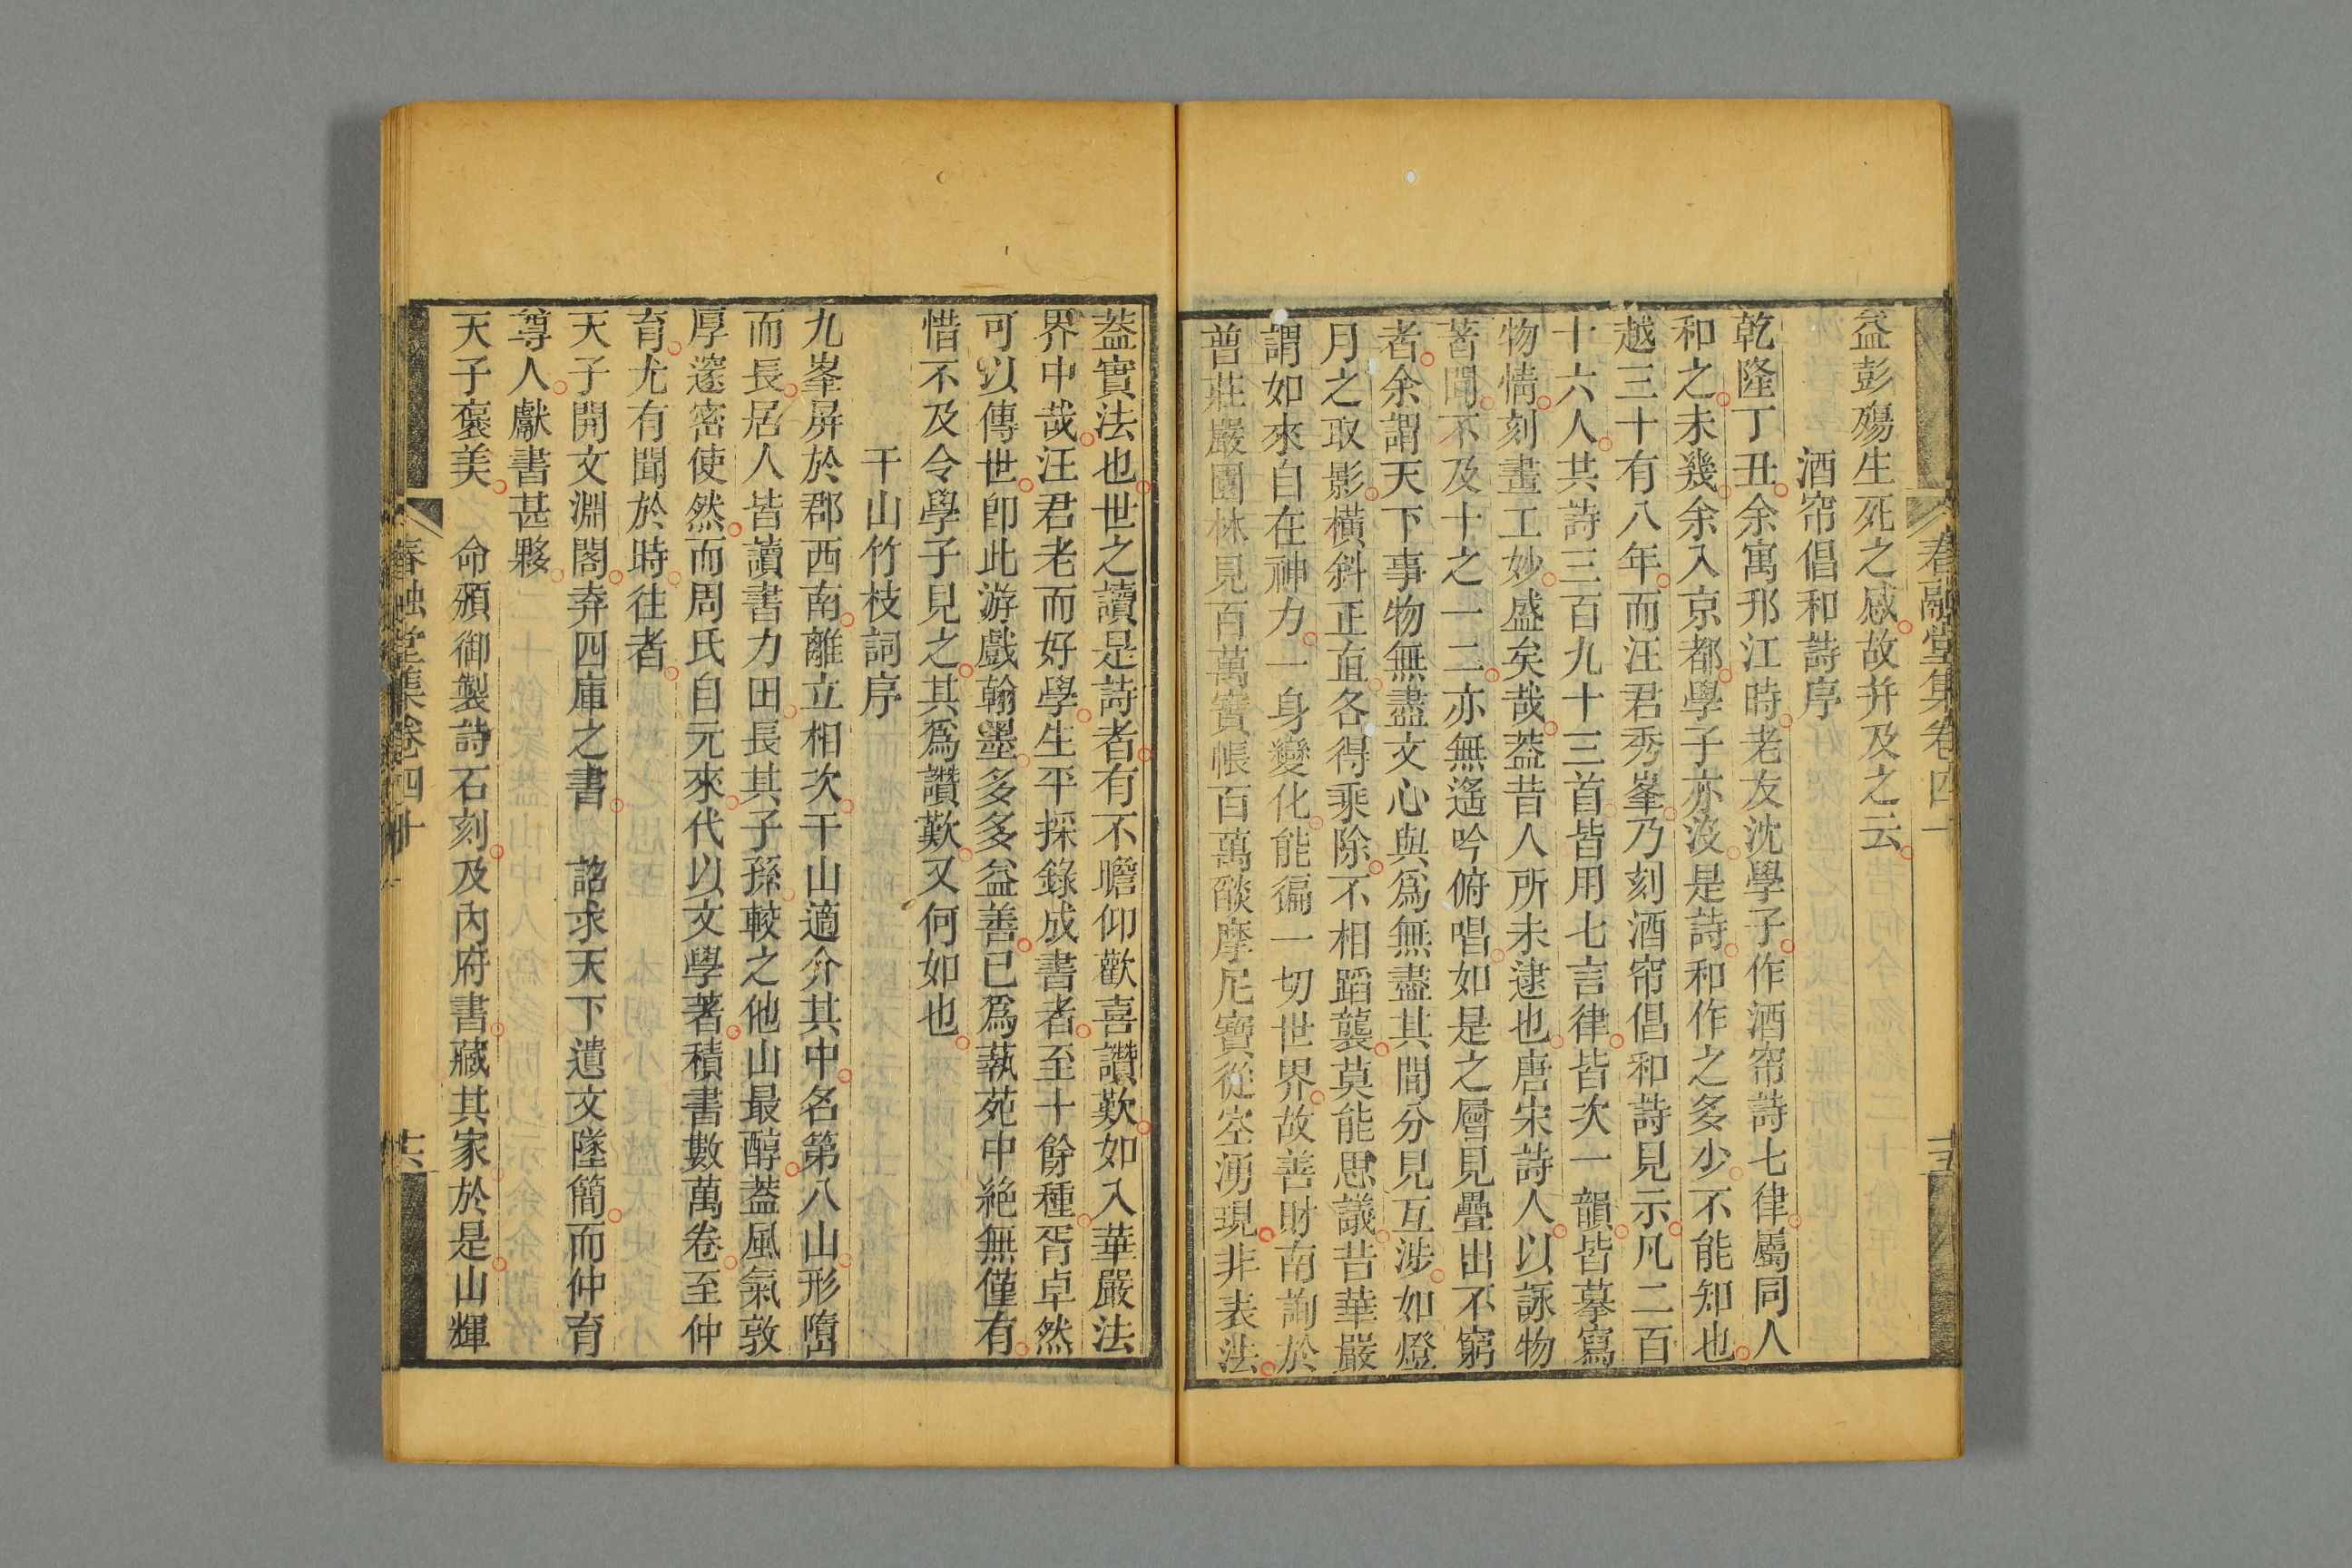 春融堂集卷四十
十五
益彭殤生死之感故并及之云
酒帘倡和詩序
乾隆丁丑余寓邗江時老友沈學子作酒帘詩七律屬同人
和之未幾余入京都學子亦沒是詩和作之多少不能知也
越三十有八年而汪君秀峯乃刻酒帘倡和詩見示凡二百
十六人共詩三百九十三首皆用七言律皆次一韻皆摹寫
物情刻畫工妙盛矣哉葢昔人所未逮也唐宋詩人以詠物
著聞不及十之一二亦無遙吟俯唱如是之層見疊出不窮
者余謂天下事物無盡文心與爲無盡其間分見互涉如燈
月之取影橫斜正直各得乘除不相蹈襲莫能思議昔華嚴
謂如來自在神力一身變化能徧一切世界故善財南詢於
普莊嚴園林見百萬寶帳百萬燄摩尼寶從空湧現非表法
葢實法也世之讀是詩者有不瞻仰歡喜讚歎如入華嚴法
界中哉汪君老而好學生平採錄成書者至十餘種胥卓然
可以傳世卽此游戲翰墨多多益善已爲蓺苑中絶無僅有
惜不及令學子見之其爲讚歎又何如也
干山竹枝詞序
九峯屏於郡西南離立相次干山適介其中名第八山形隋
而長居人皆讀書力田長其子孫較之他山最醇葢風氣敦
厚邃密使然而周氏自元來代以文學著積書數萬卷至仲
育尤有聞於時往者
天子開文淵閣弆四庫之書　詔求天下遺文墜簡而仲育
尊人獻書甚夥
天子褒美　命頒御製詩石刻及內府書藏其家於是山輝
春融堂集卷四十
十六